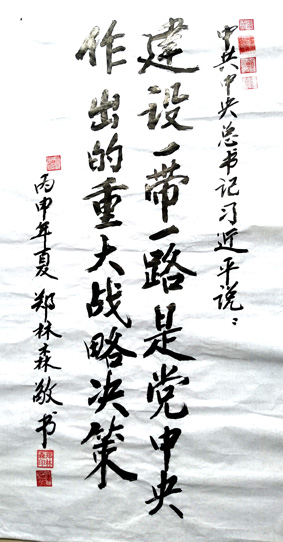 中共中央总书记习近平说：
建设一带一路是党中央
作出的重大战略决策
丙申年夏郑林森敬书